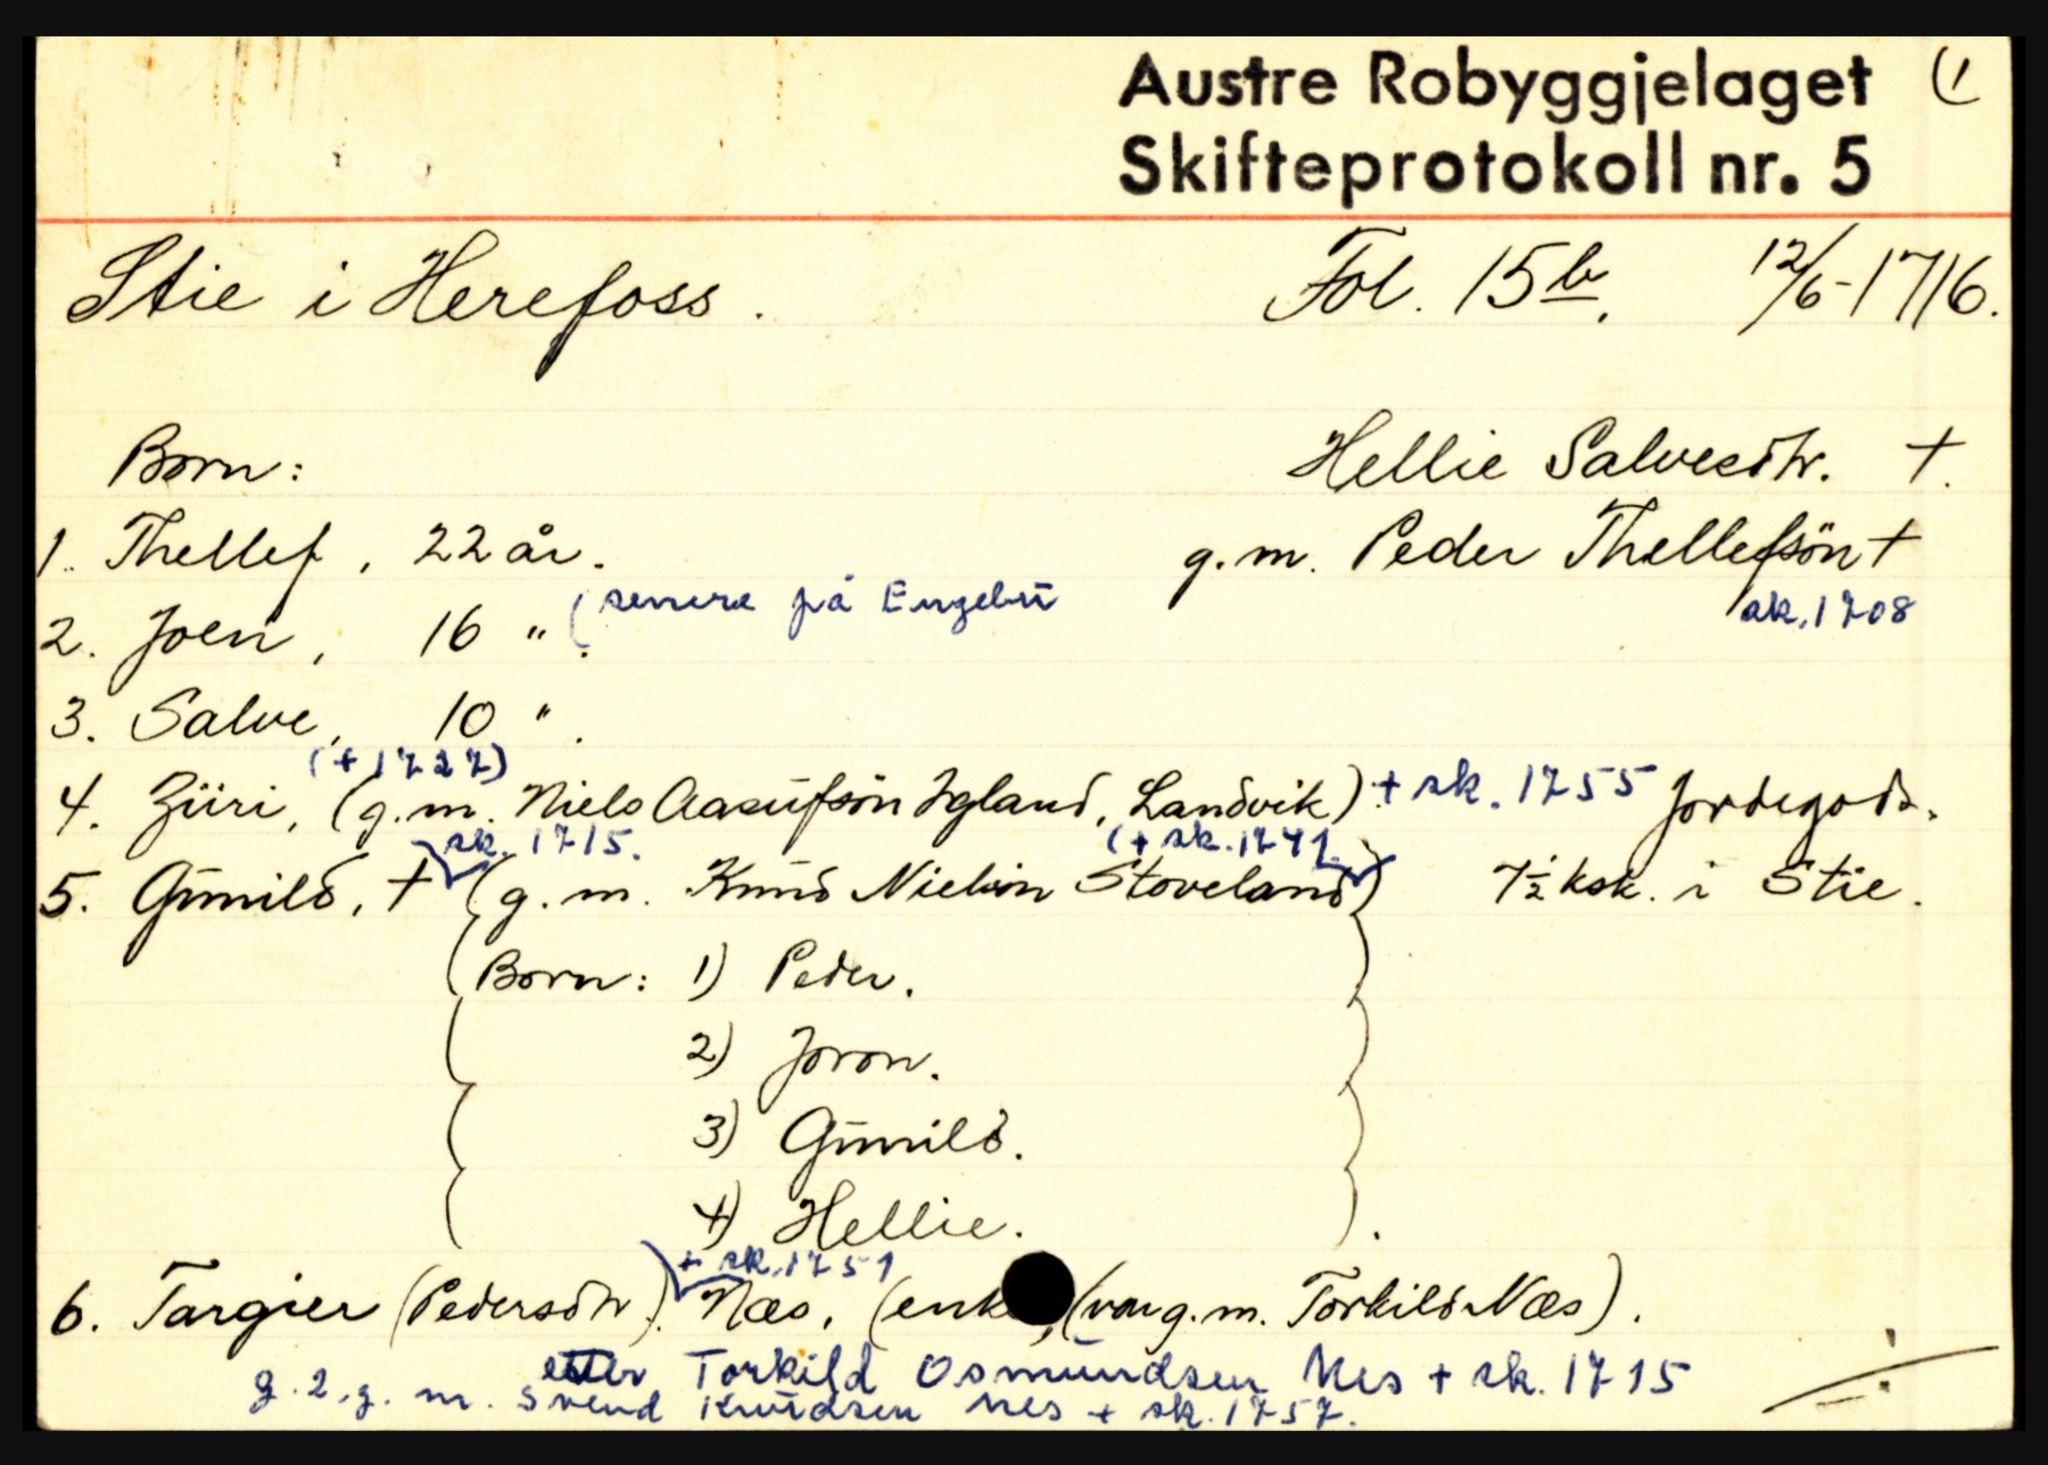 Austre Robyggjelaget (1
Skifteprotokoll nr. 5
Stie i Herefoss. Fol. 15 b. 12/6-1716.
Born: Hellie Salvesdtr. +.
1. Thellef, 22 år. g.m. Peder Thellefsön +
(senere på Engebu sk. 1708
2. Joen, 16 ".
3. Salve, 10 ".
(+ 1727)
4. Züri, (g.m. Niels Aasufsön Igland, Landvik). + sk. 1755 Jordegods.
sk. 1715. (+ sk. 1741.
5. Gunild, + (g.m. Knud Nielsön Stoveland) 7½ ksk. i Stie.
Born: 1) Peder.
2) Joron.
3) Gunild.
4) Hellie.
+ sk. 1751
6. Targier (Pedersdtr). Næs, (enke, (var g.m. Torkild Næs).
etter Torkild Osmundsen Nes + sk. 1715
g. 2. g. m. Svend Knudsen Nes + sk. 1757.